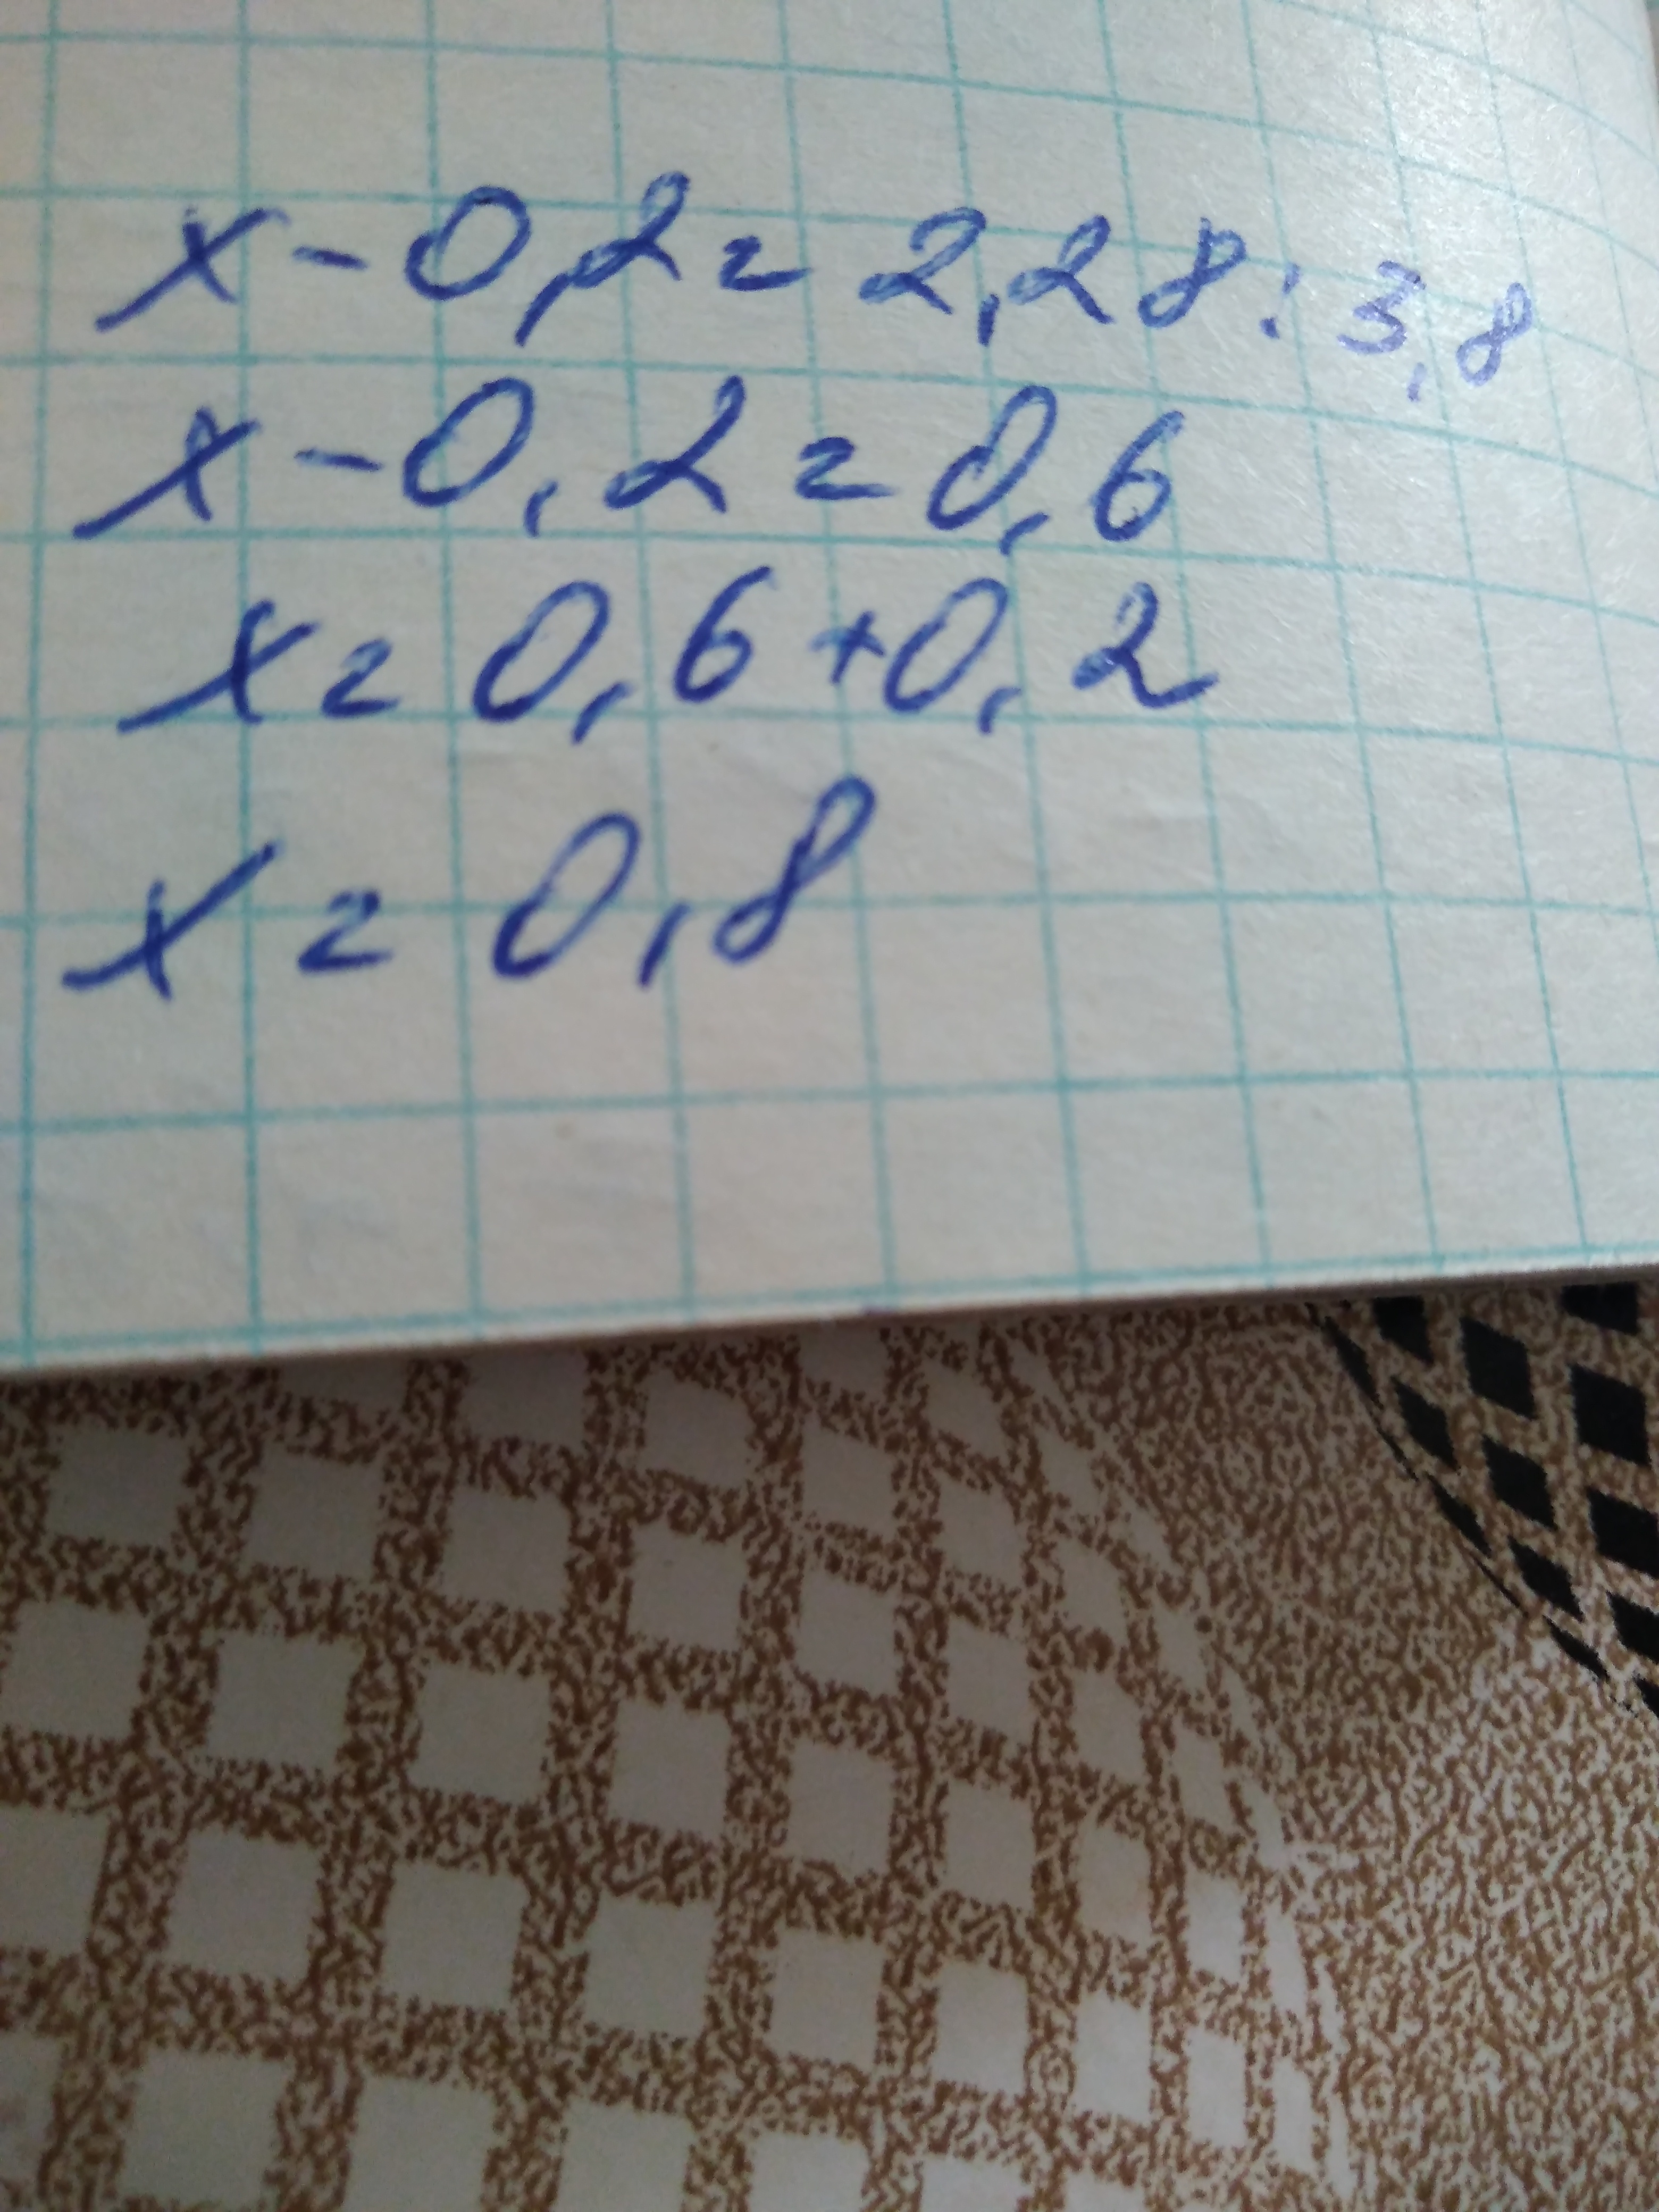 x - 0,2 = 2,28 : 3,8
x - 0,2 = 0,6
x = 0,6 + 0,2
x = 0,8